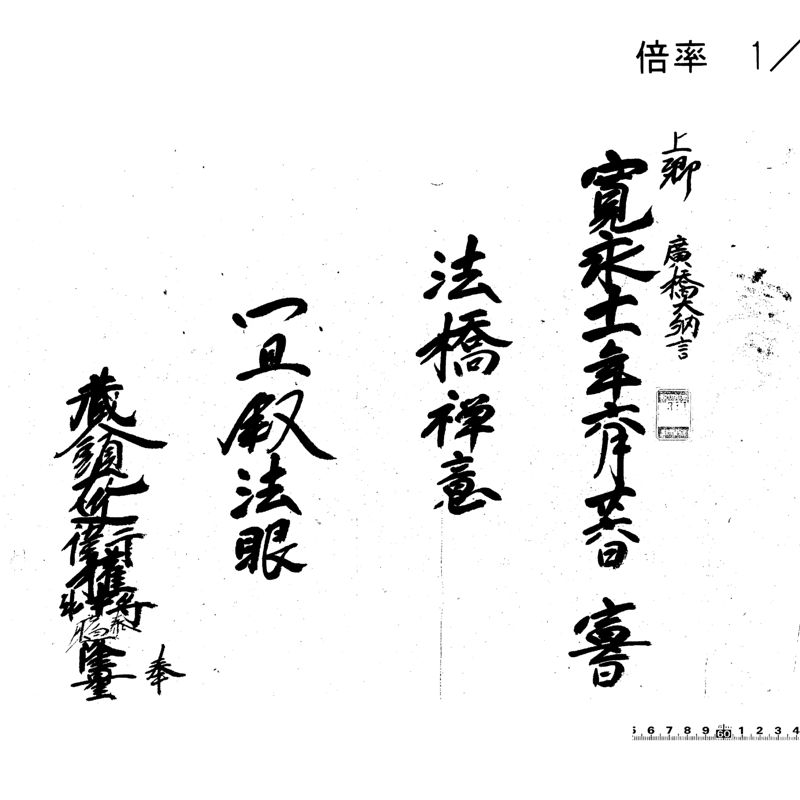 倍率 1/
上卿 廣橋大納言
寛永十一年六月廿日 宣旨
法橋禅意
宜叙法眼
藏人頭近衛権中将藤原隆量 奉
6 7 8 9 60 1 2 3 4